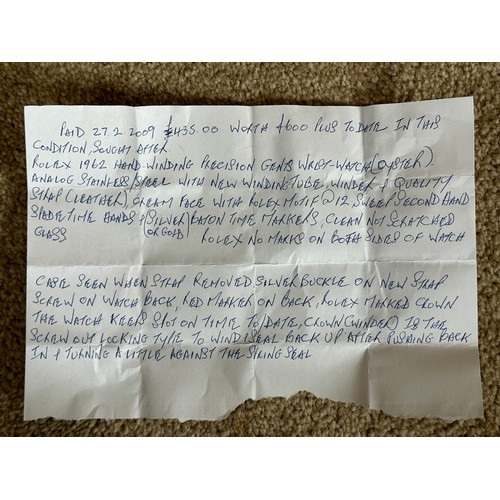 PAID 27.2 2009 £435.00 WORTH £600 PLUS TO DATE IN THIS
CONDITION, SOUGHT AFTER
ROLEX 1962 HAND-WINDING PRECISION GENTS WRIST-WATCH (OYSTER).
ANALOG STAINLESS/STEEL WITH NEW WINDING TUBE, WINDER & QUALITY
STRAP (LEATHER), CREAM FACE WITH ROLEX MOTIF @ 12, SWEEP SECOND HAND
SPADE TIME HANDS & SILVER BATON TIME MARKERS, CLEAN NOT SCRATCHED
GLASS (OR GOLD) ROLEX NO MARKS ON BOTH SIDES OF WATCH
CASE SEEN WHEN STRAP REMOVED SILVER BUCKLE ON NEW STRAP
SCREW ON WATCH BACK, RED MARKER ON BACK, ROLEX MARKED CROWN
THE WATCH KEEPS SPOT ON TIME TO/DATE, CROWN (WINDER) IS THE
SCREW OUT LOCKING TYPE TO WIND & SEAL BACK UP AFTER PUSHING BACK
IN & TURNING A LITTLE AGAINST THE SPRING SEAL